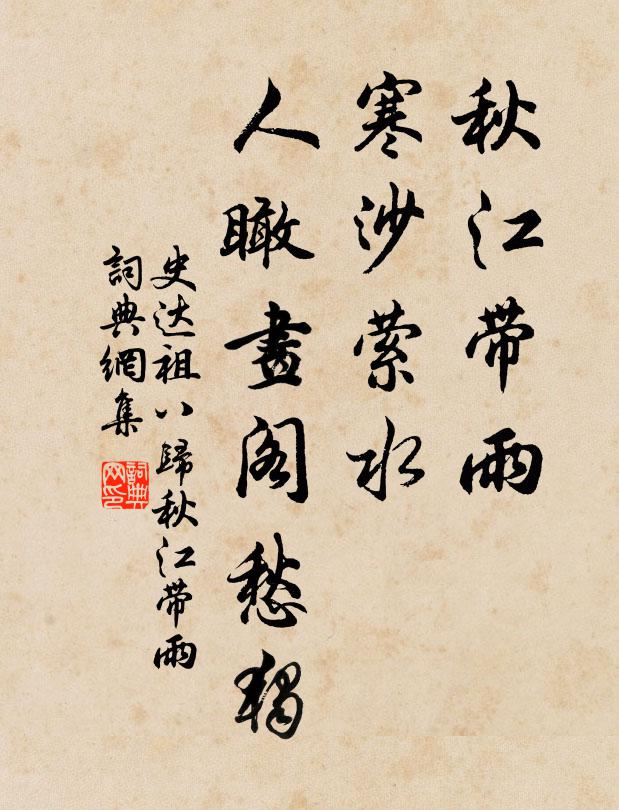 秋江带雨
寒沙萦水
人瞰畫阁愁獨
史达祖八歸秋江带雨
詞典網集
詞典网印